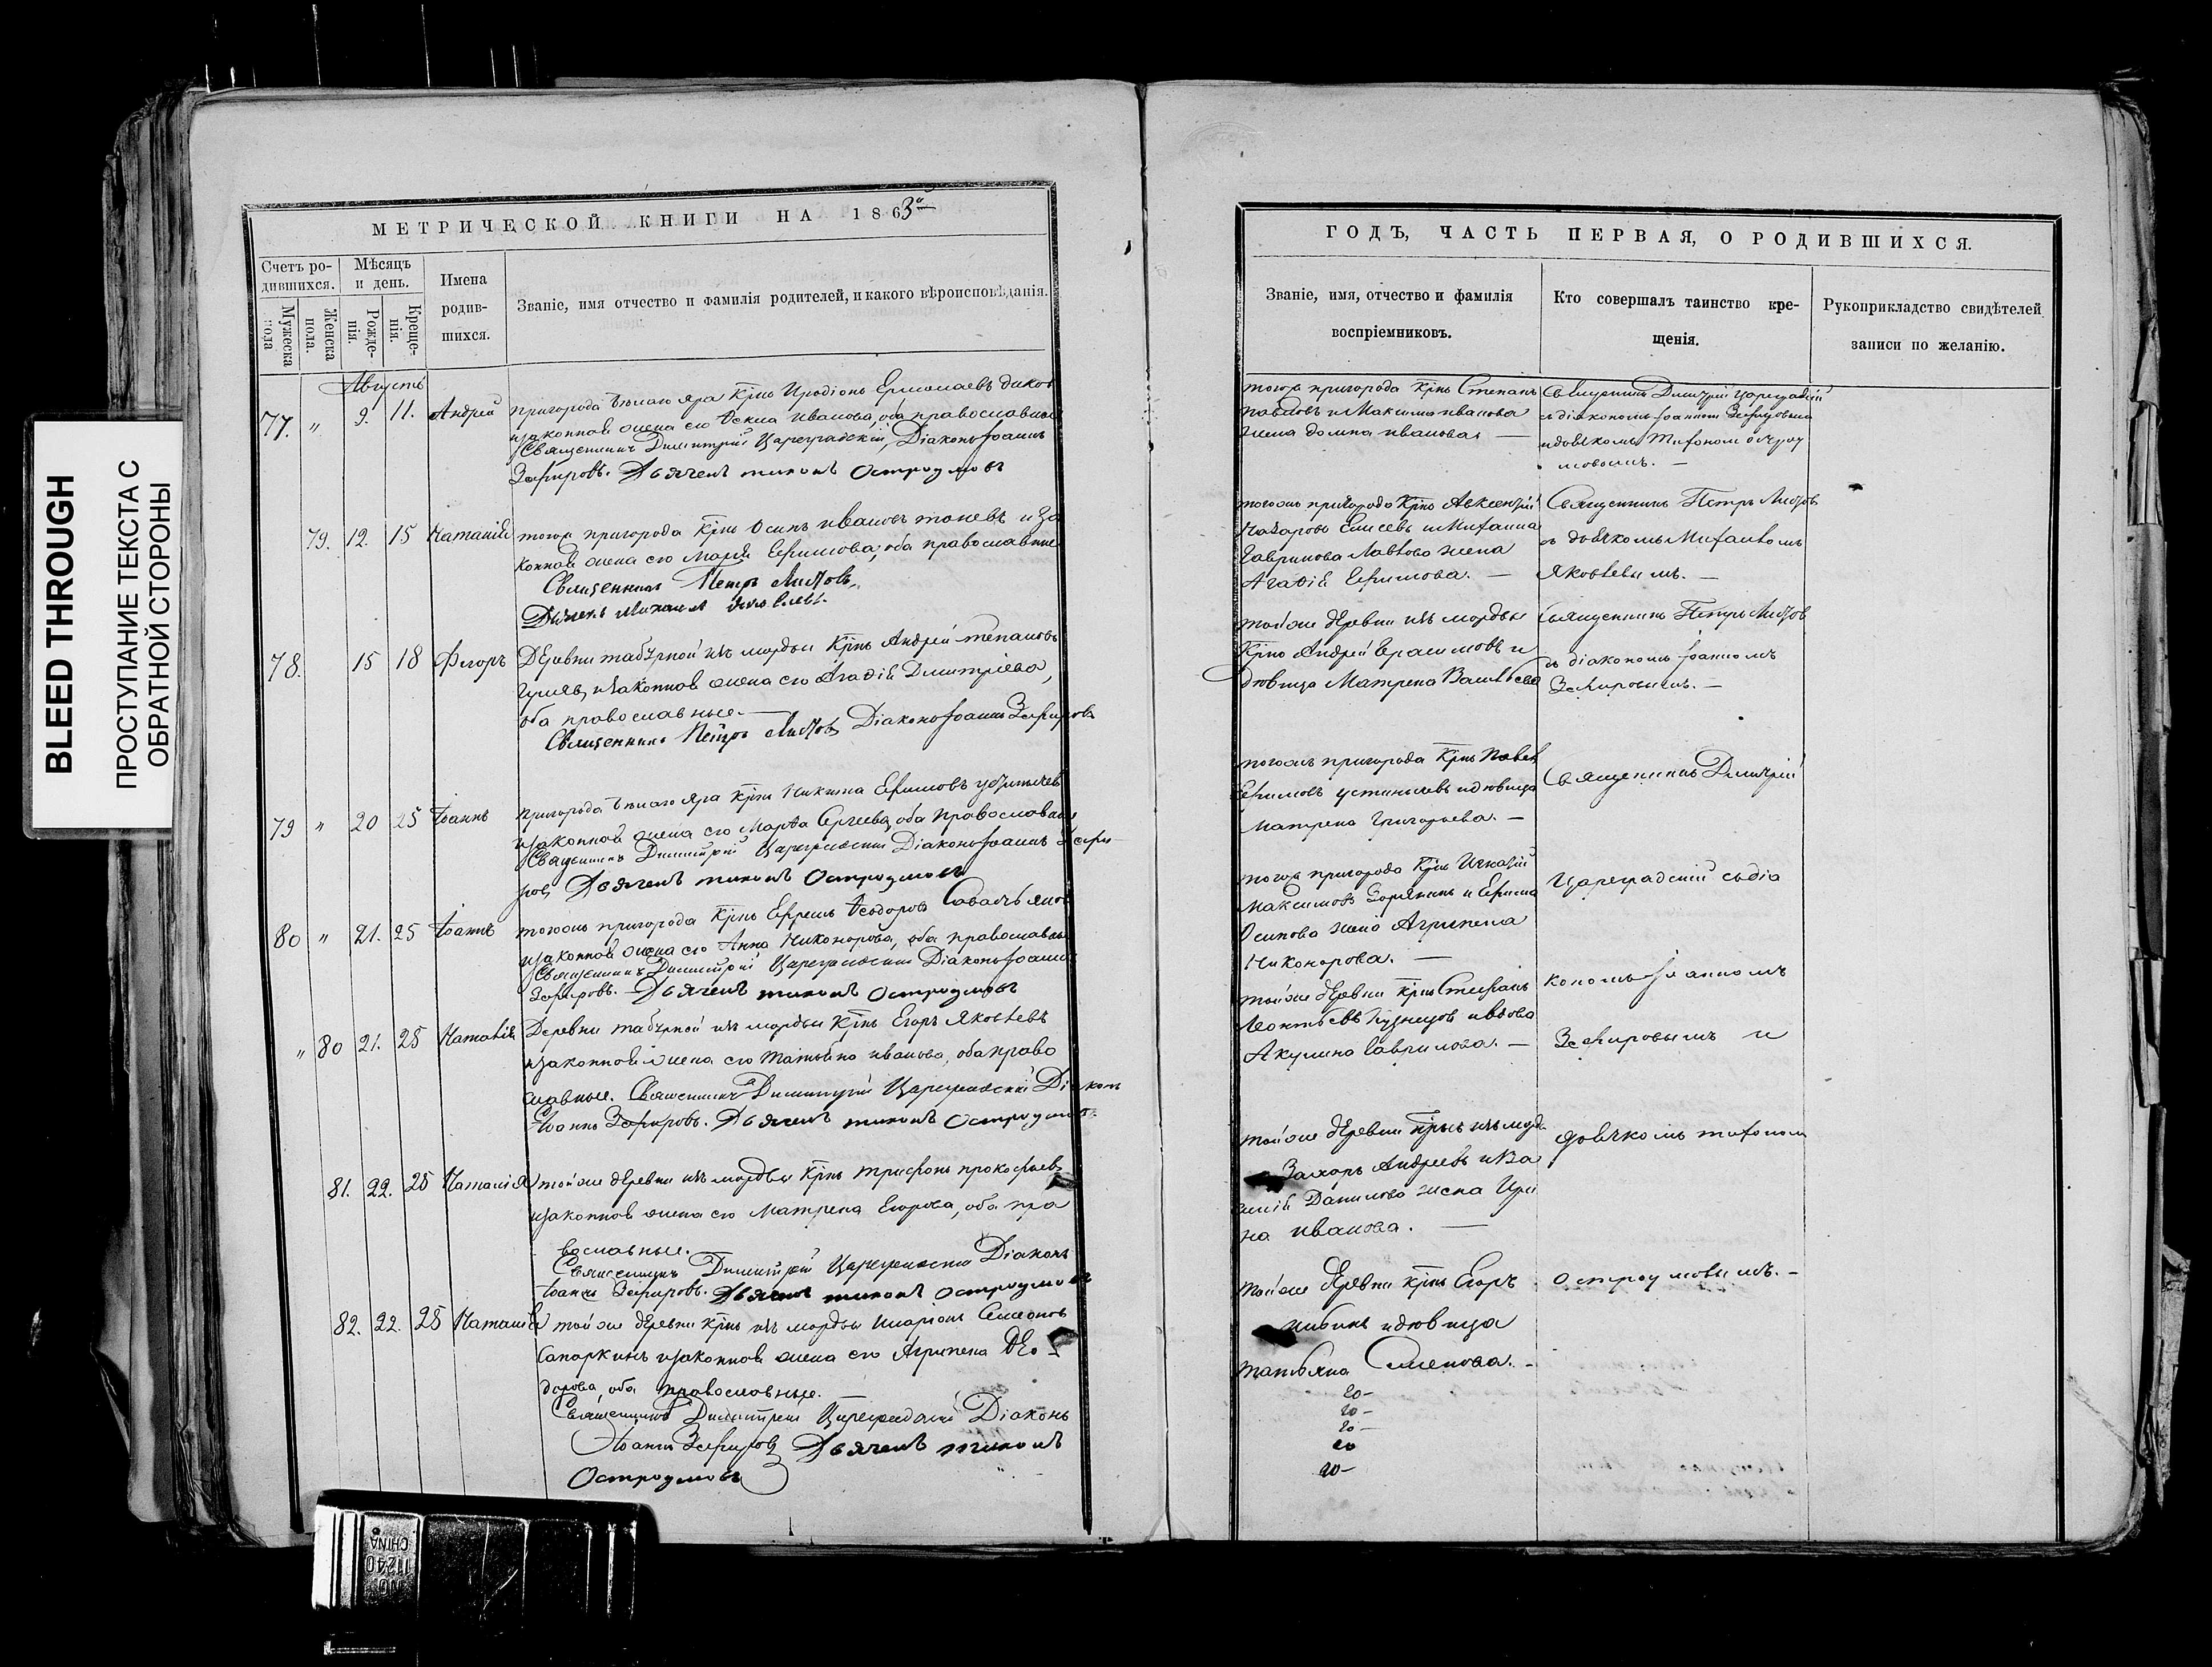 BLEED THROUGH
ПРОСТУПАНИЕ ТЕКСТА С
ОБРАТНОЙ СТОРОНЫ
МЕТРИЧЕСКОЙ КНИГИ НА 1863й
Счетъ ро-
дившихся.
Мужеска
пола
Женска
пола.
Мѣсяцъ
и день.
Рожде-
нія.
Креще-
нія.
Имена
родив-
шихся.
Званіе, имя отчество и фамилія родителей, и какого вѣроисповѣданія.
Августъ
77. " 9. 11. Андрей
пригорода Бѣлаго яра Крнъ Иродіонъ Ермолаевъ
изаконная жена его Иванова, оба православные
Священникъ Димитрій Цареградскій, Діаконъ Іоаннъ
Зефировъ. Дьячекъ тихонъ Остроумовъ
79. 12. 15 Наталія
тогожъ пригорода Крнъ Осипъ ивановъ иза
конная жена его Марѳа Ефимова, оба православные
Священникъ Петръ Листовъ
Дьячекъ Михаилъ Яковлевъ.
78. 15 18 Флоръ
Деревни табурной изъ мордвы Крнъ Андрей степановъ
изаконная жена его Агаѳія Дмитріева,
оба православные.
Священникъ Петръ Листовъ Діаконъ Іоаннъ Зефировъ
79 " 20 25 Іоаннъ
пригорода Бѣлаго яра Крнъ Никита Ефимовъ
изаконная жена его Марѳа Сергеева, оба православные
Священникъ Димитрій Цареградскій Діаконъ Іоаннъ Зефи-
ровъ Дьячекъ тихонъ Остроумовъ
80 " 21. 25 Іоаннъ
тогожъ пригорода Крнъ Ефремъ Ѳеодоровъ
изаконная жена его Анна Никонорова, оба православные
Священникъ Димитрій Цареградскій Діаконъ Іоаннъ
Зефировъ. Дьячекъ тихонъ Остроумовъ
" 80 21. 25 Наталія
Деревни табурной изъ мордвы Крнъ Егоръ Яковлевъ
изаконная жена его татьяна иванова, оба право
славные. Священникъ Димитрій Цареградскій Діаконъ
Іоаннъ Зефировъ. Дьячекъ тихонъ Остроумовъ
81. 22. 25 Наталія
тойже деревни изъ мордвы Крнъ трифонъ прокофьевъ
изаконная жена его Матрена Егорова, оба пра
вославные.
Священникъ Димитрій Цареградскій Діаконъ
Іоаннъ Зефировъ. Дьячекъ тихонъ Остроумовъ
82. 22. 25 Наталія
тойже деревни Крнъ изъ мордвы иларіонъ Семеоновъ
Сапоркинъ изаконная жена его Агрипена Ѳео
дорова, оба православные.
Священникъ Димитрій Цареградскій Діаконъ
Іоаннъ Зефировъ Дьячекъ тихонъ
Остроумовъ
ГОДЪ, ЧАСТЬ ПЕРВАЯ, О РОДИВШИХСЯ.
Званіе, имя, отчество и фамилія
воспріемниковъ.
Кто совершалъ таинство кре-
щенія.
Рукоприкладство свидѣтелей
записи по желанію.
тогожъ пригорода Крнъ Степанъ
павловъ и Максима иванова
жена домна иванова.
Священникъ Димитрій Цареградскій
съ діакономъ Іоанномъ Зефировымъ
идьячкомъ Тихономъ Остроу
мовымъ.
тогожъ пригорода Крнъ Авксентій
Назаровъ Елисеевъ и Михаила
Гаврилова жена
Агаѳія Ефимова.
Священникъ Петръ Листовъ
съ дьячкомъ Михаиломъ
Яковлевымъ.
тойже деревни изъ мордвы
Крнъ Андрей Герасимовъ и
дѣвица Матрена Васильева
Священникъ Петръ Листовъ
съ діакономъ Іоанномъ
Зефировымъ.
тогожъ пригорода Крнъ Павелъ
Ефимовъ идѣвица
Матрена Григорьева.
тогожъ пригорода Крнъ Игнатій
Максимовъ и Ефима
Осипова жена Агрипена
Никонорова.
тойже деревни Крнъ Стефанъ
Леонтьевъ Кузнецовъ ивдова
Акулина Гаврилова.
тойже деревни изъ морд
Захаръ Андреевъ и Ва
силія Данилова жена Ири
на иванова.
тойже деревни Крнъ Егоръ
идѣвица
татьяна Семенова.
Священникъ Димитрій
Цареградскій съ діа
кономъ Іоанномъ
Зефировымъ и
дьячкомъ тихономъ
Остроумовымъ.
20-
20-
20-
20
20-